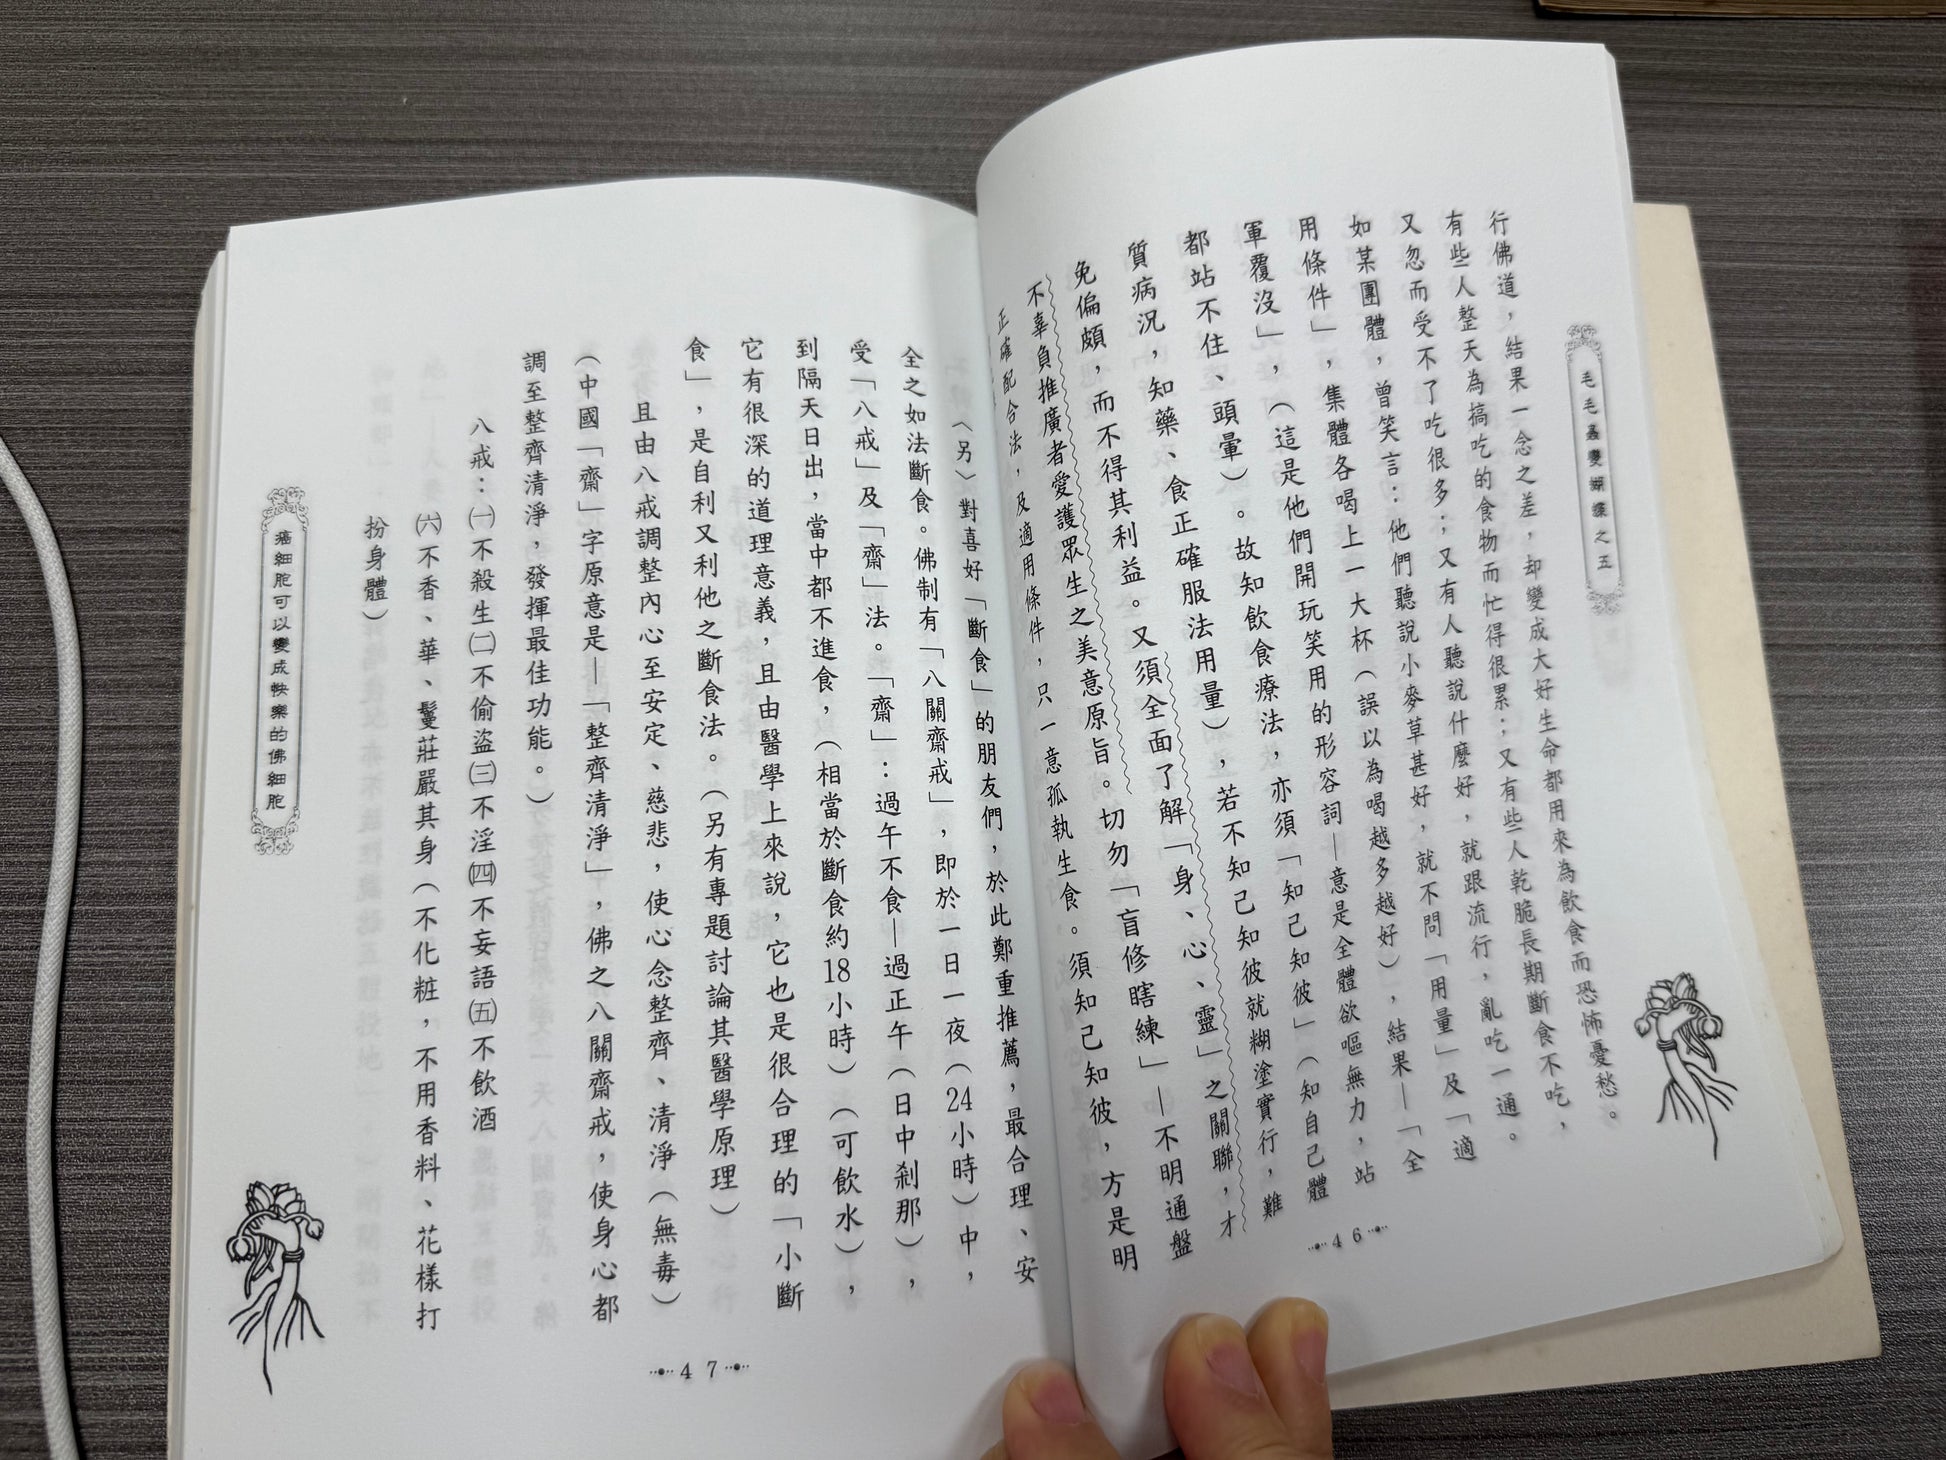 毛毛蟲變蝴蝶之五
行佛道，結果一念之差，却變成大好生命都用來為飲食而恐怖憂愁。
有些人整天為搞吃的食物而忙得很累；又有些人乾脆長期斷食不吃，
又忽而受不了吃很多；又有人聽說什麼好，就跟流行，亂吃一通。
如某團體，曾笑言：他們聽說小麥草甚好，就不問「用量」及「適
用條件」，集體各喝上一大杯（誤以為喝越多越好），結果—「全
軍覆沒」，（這是他們開玩笑用的形容詞—意是全體欲嘔無力，站
都站不住、頭暈）。故知飲食療法，亦須「知己知彼」（知自己體
質病況，知藥、食正確服法用量），若不知己知彼就糊塗實行，難
免偏頗，而不得其利益。又須全面了解「身、心、靈」之關聯，才
不辜負推廣者愛護眾生之美意原旨。切勿「盲修瞎練」—不明通盤
正確配合法，及適用條件，只一意孤執生食。須知己知彼，方是明
46
〈另〉對喜好「斷食」的朋友們，於此鄭重推薦，最合理、安
全之如法斷食。佛制有「八關齋戒」，即於一日一夜（24小時）中，
受「八戒」及「齋」法。「齋」：過午不食—過正午（日中剎那），
到隔天日出，當中都不進食，（相當於斷食約18小時）（可飲水），
它有很深的道理意義，且由醫學上來說，它也是很合理的「小斷
食」，是自利又利他之斷食法。（另有專題討論其醫學原理）
且由八戒調整內心至安定、慈悲，使心念整齊、清淨（無毒）
（中國「齋」字原意是—「整齊清淨」，佛之八關齋戒，使身心都
調至整齊清淨，發揮最佳功能。）
八戒：㈠不殺生㈡不偷盜㈢不淫㈣不妄語㈤不飲酒
㈥不香、華、鬘莊嚴其身（不化粧，不用香料、花樣打
扮身體）
癌細胞可以變成快樂的佛細胞
47